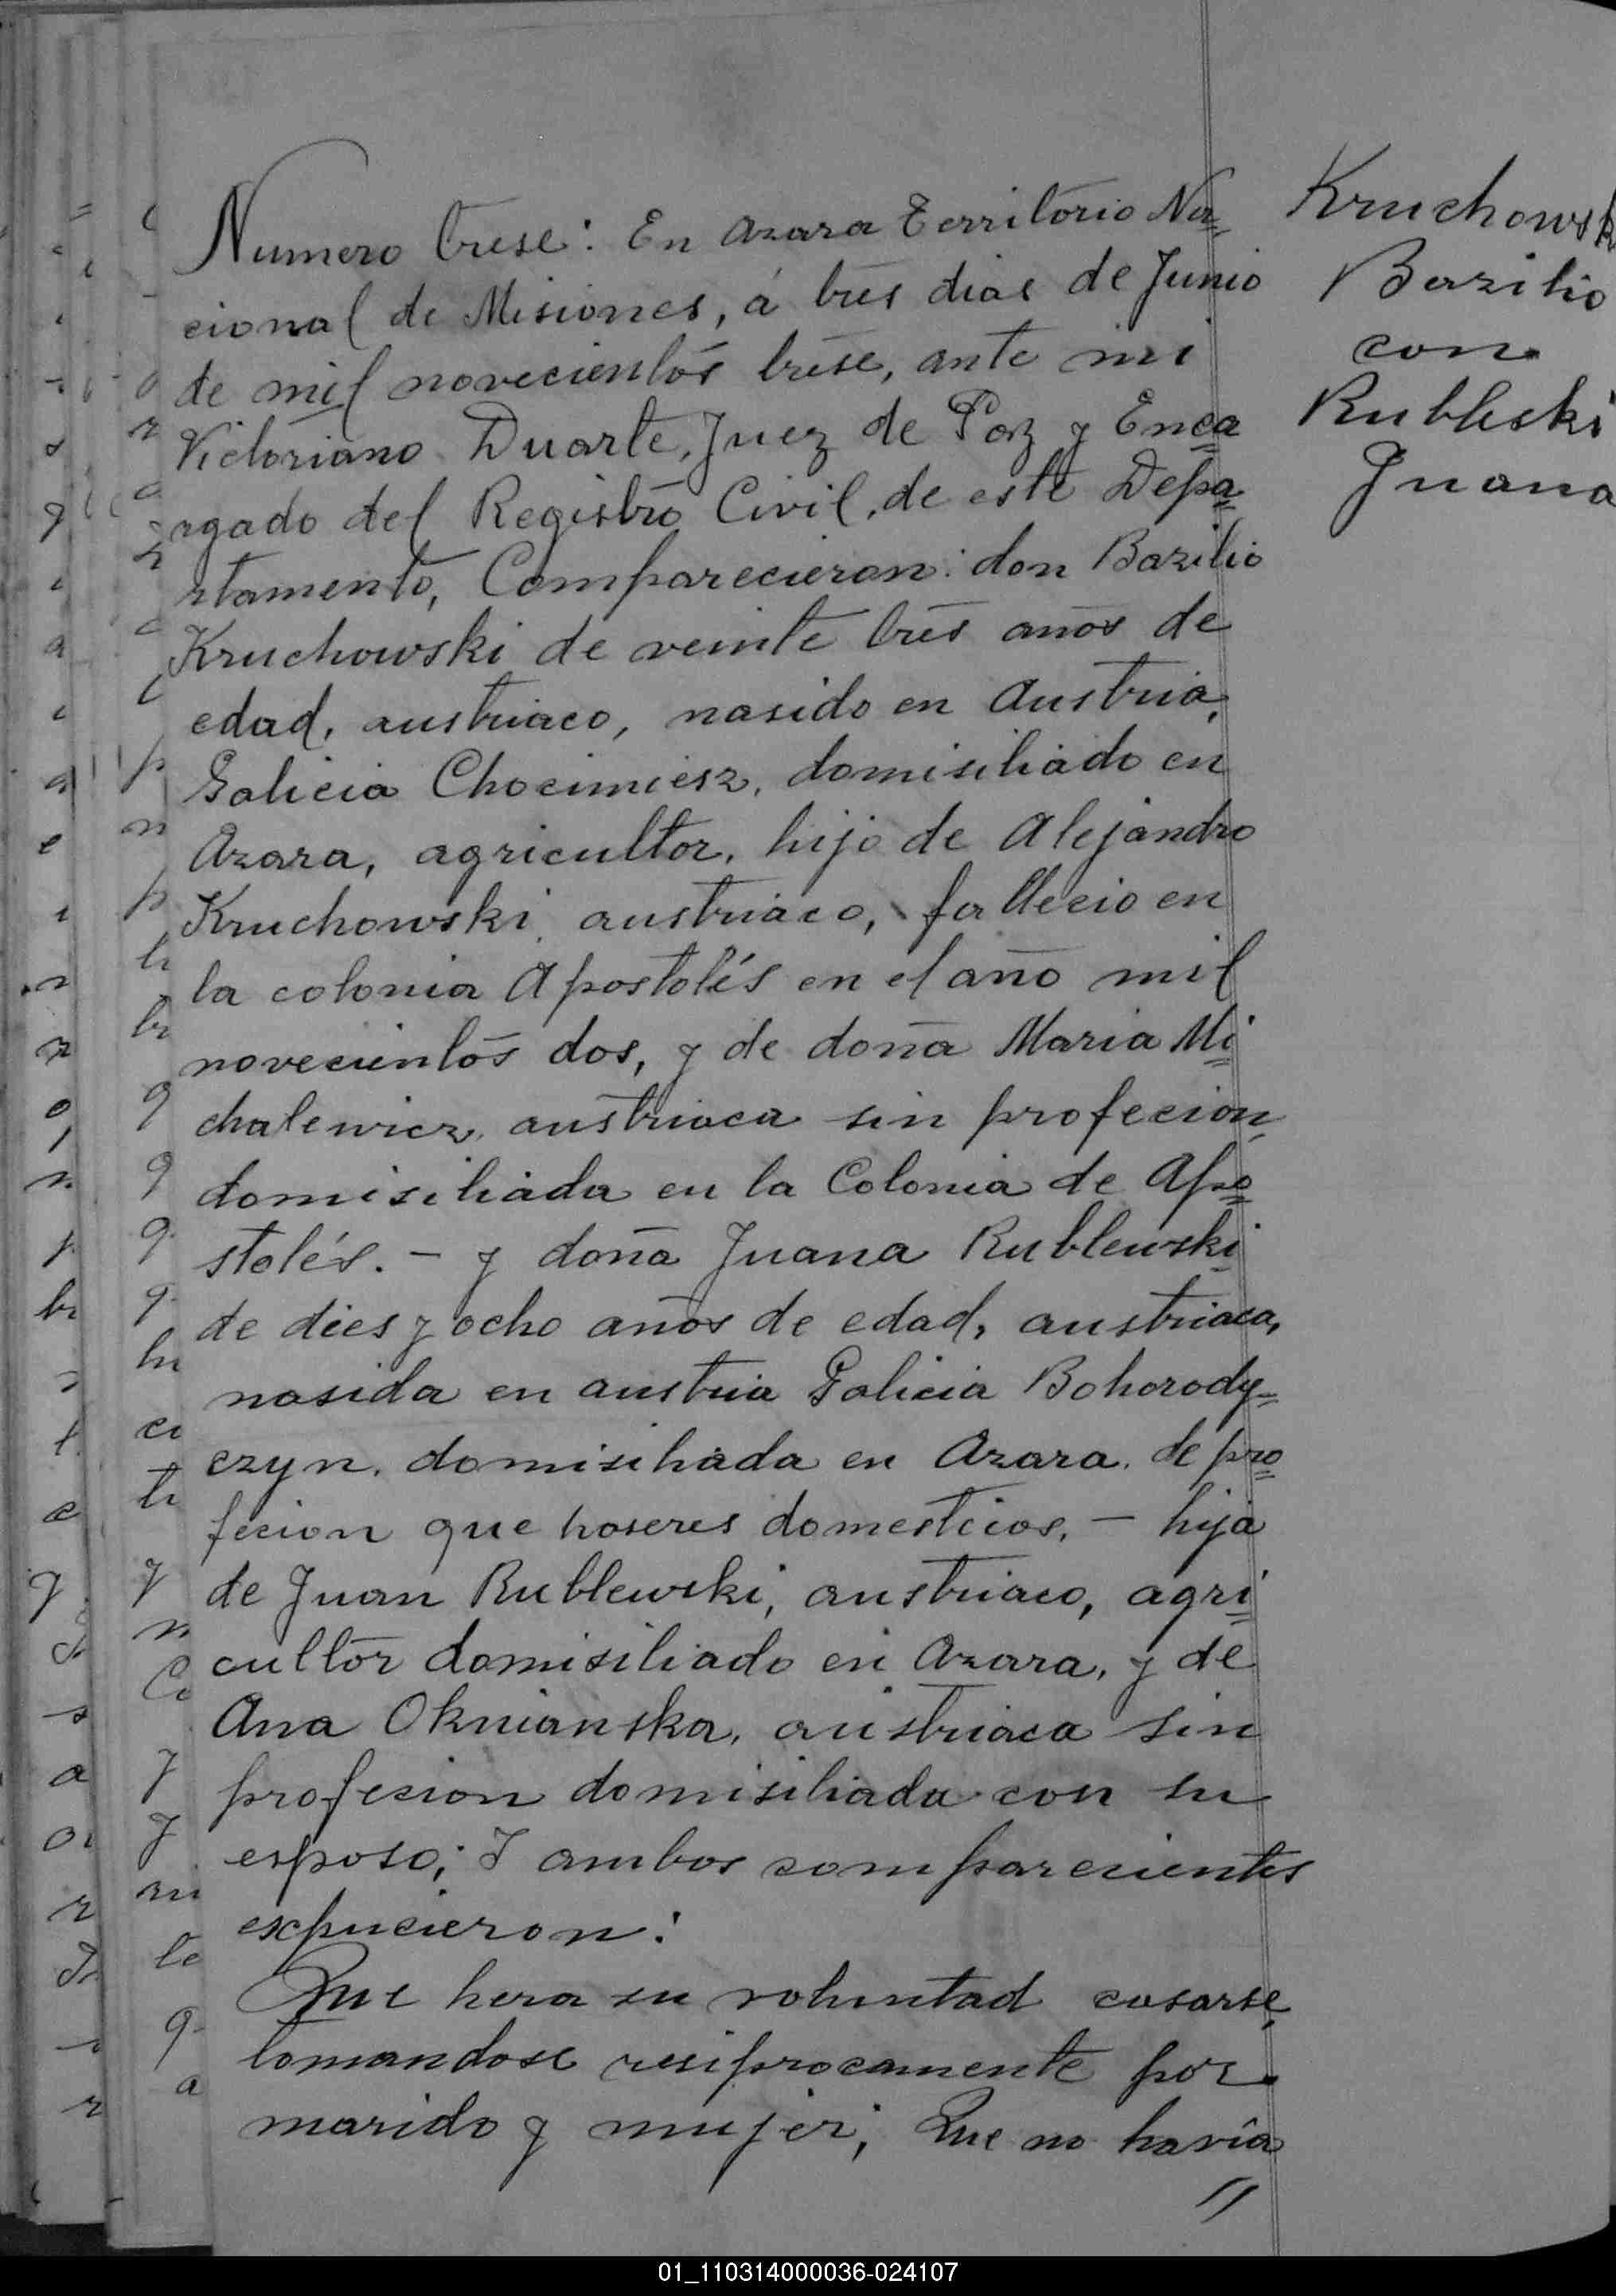 Numero trese: En Azara Territorio Na=
cional de Misiones, á tres dias de Junio
de mil novecientos trese, ante mi
Victoriano Duarte, Juez de Paz y Enca=
rgado del Registro Civil, de este Depa=
rtamento, Comparecieron: don Bazilio
Kruchowski de veinte tres años de
edad, austriaco, nasido en Austria,
Galicia Chocimiesz, domisiliado en
Azara, agricultor, hijo de Alejandro
Kruchowski, austriaco, fallecio en
la colonia Apostolés en el año mil
novecientos dos, y de doña Maria Mi=
chalewicz, austriaca sin profecion,
domisiliada en la Colonia de Apo=
stolés. - y doña Juana Rublewski
de dies y ocho años de edad, austriaca,
nasida en austria Galicia Bohorody=
czyn, domisiliada en Azara, de pro=
fecion que haseres domesticos, - hija
de Juan Rublewski, austriaco, agri=
cultor domisiliado en Azara, y de
Ana Oknianska, austriaca sin
profesion domisiliada con su
esposo; I ambos comparecientes
expucieron:
Que hera su voluntad casarse,
tomandose resiprocamente por
marido y mujer; Que no havia
//
Kruchowsk
Bazilio
con
Rubleski
Juana
01_110314000036-024107